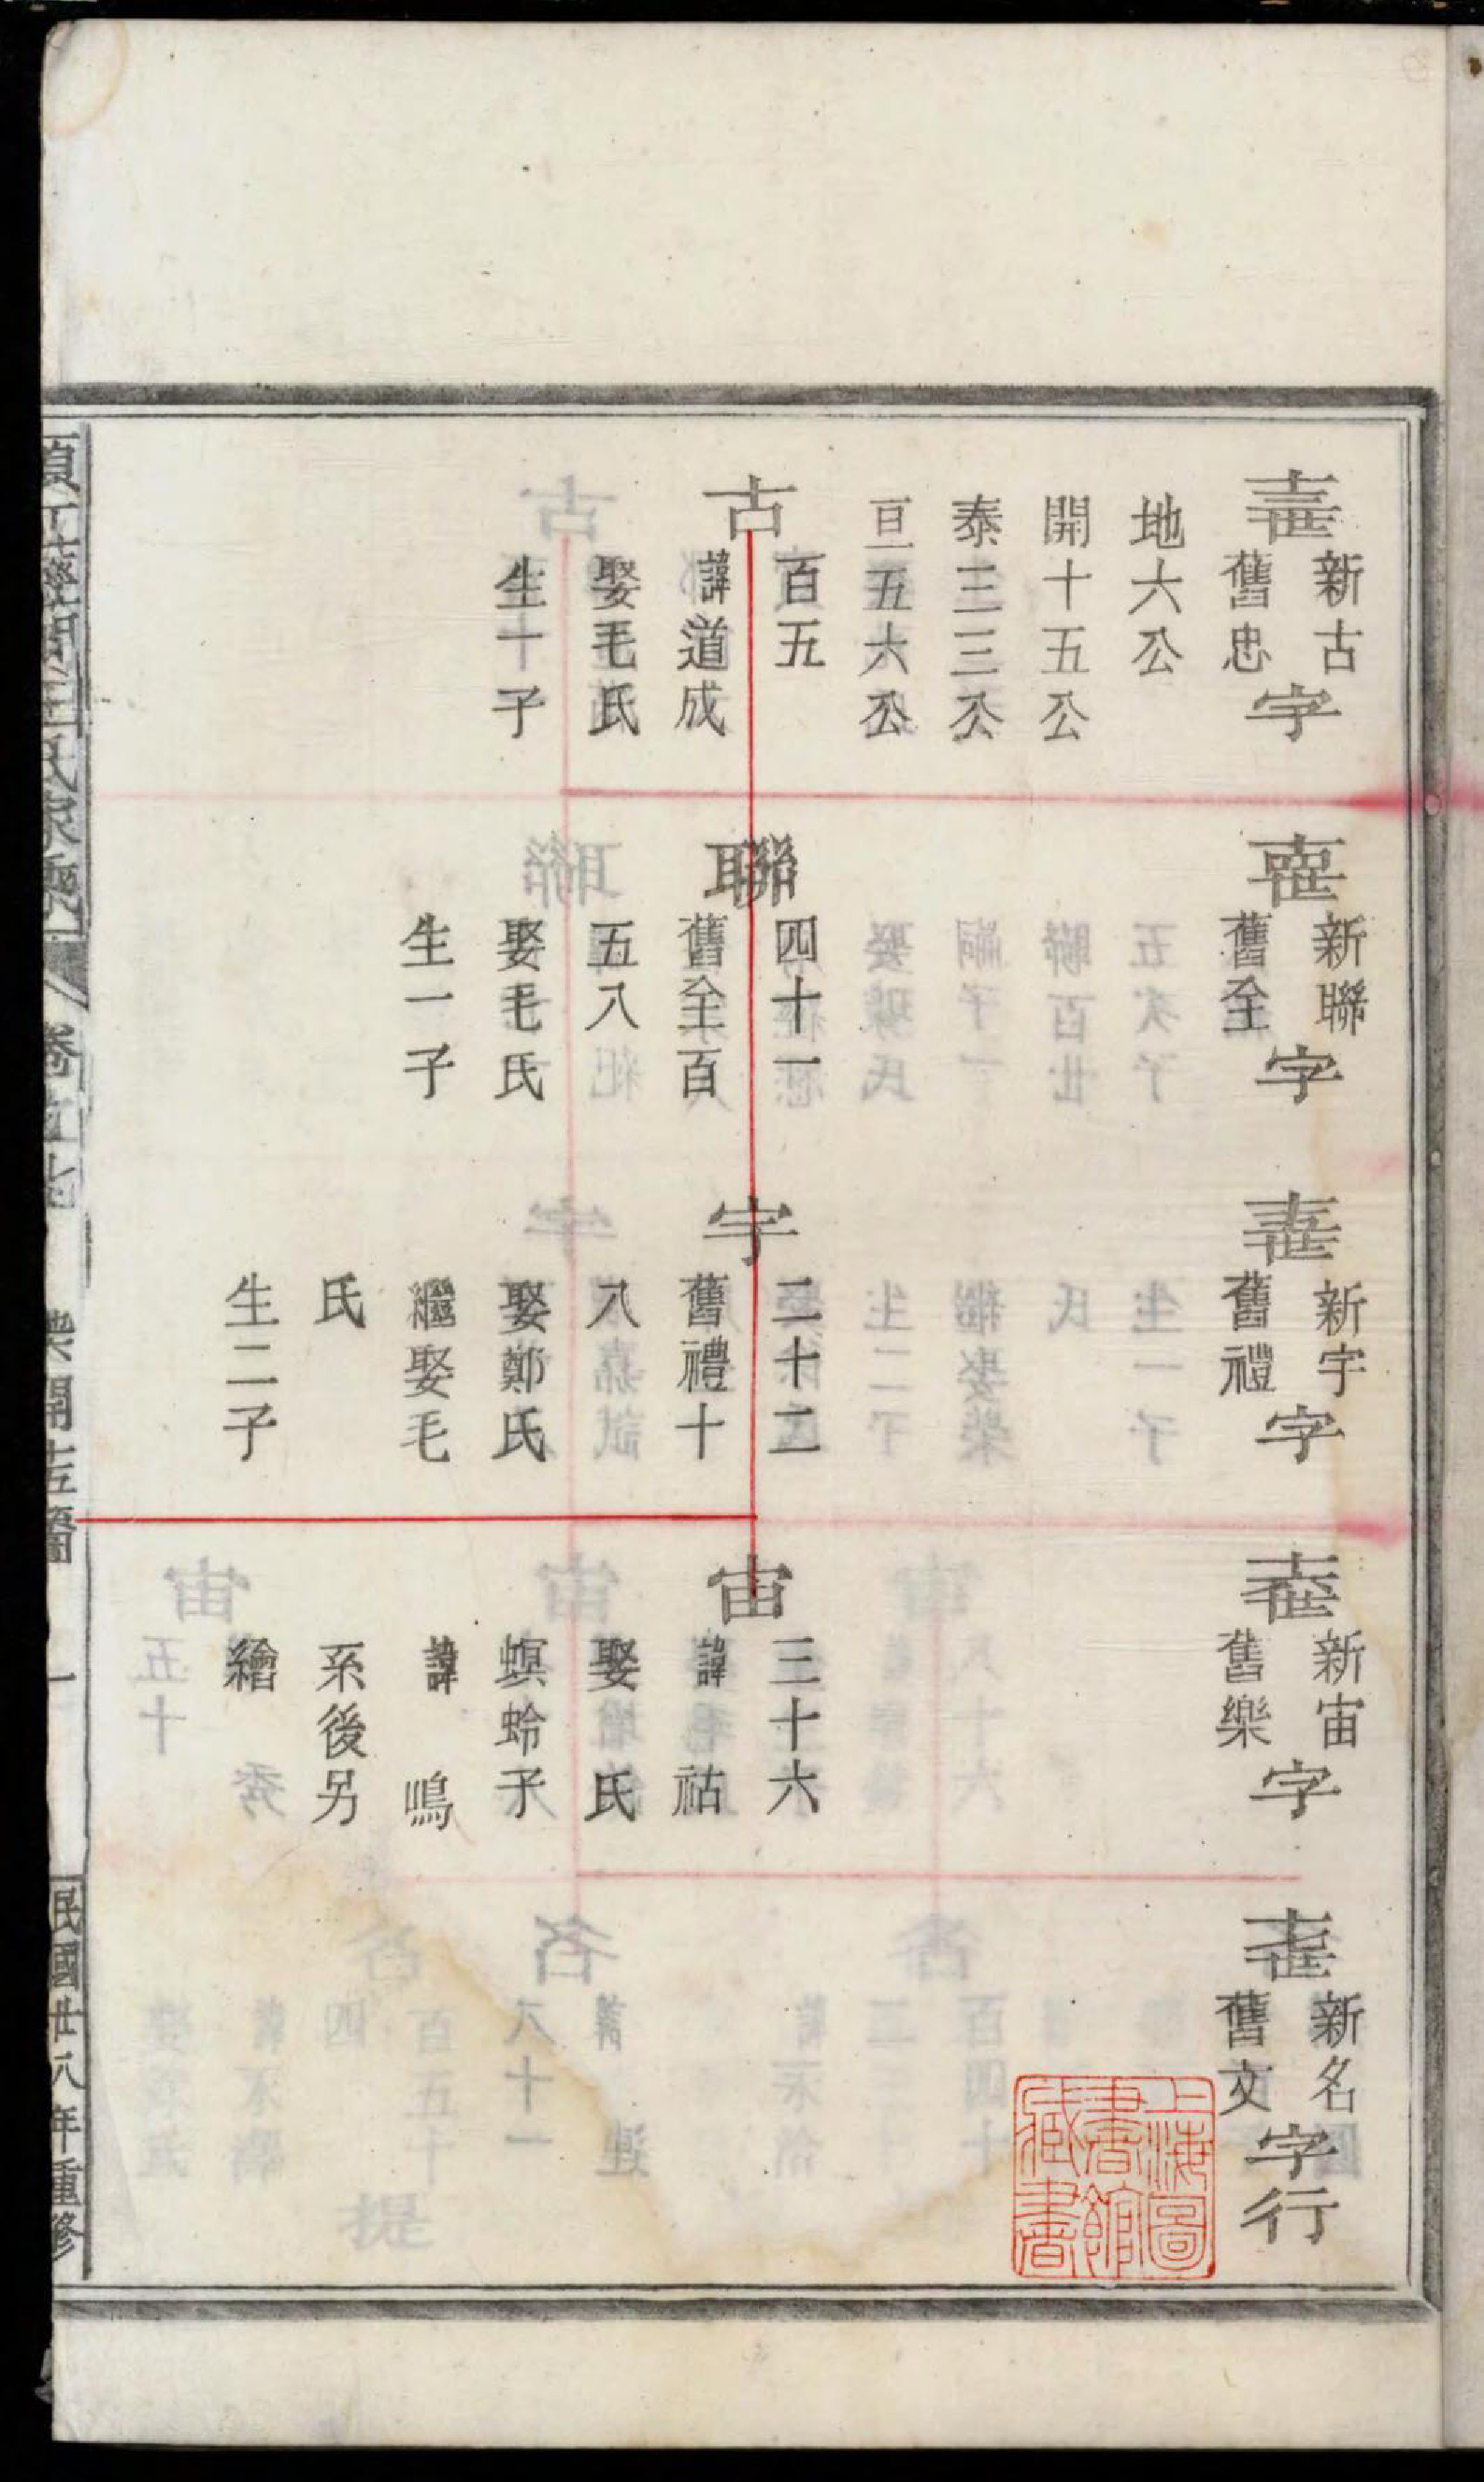 十三世
新古
舊忠
字
地六公
開十五公
泰三三公
亘五六公
古
百五
諱道成
娶毛氏
生十子
十四世
新聯
舊全
字
聯
四十一
舊全百
五八
娶毛氏
生一子
十五世
新宇
舊禮
字
宇
二十二
舊禮十
八
娶鄭氏
繼娶毛
氏
生二子
十六世
新宙
舊樂
字
宙
三十六
諱祜
娶氏
螟蛉子
諱鳴
系後另
繪
十七世
新名
舊文
字行
上海圖
書館
藏書
氏家乘
一
民國廿八年重修